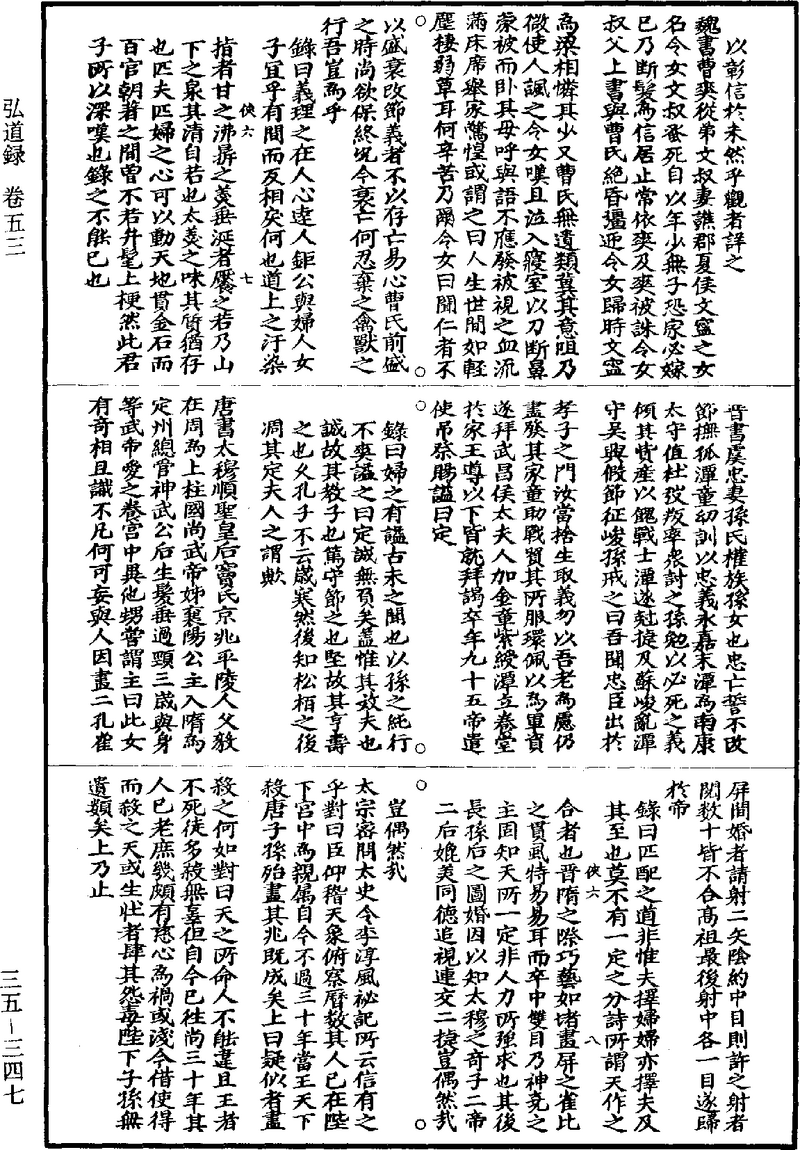 弘道録 卷五三
三五－三四七
以彰信於未然乎觀者詳之
魏書曹爽從弟文叔妻譙郡夏侯文寧之女
名令女文叔蚤死自以年少無子恐家必嫁
已乃斷髮為信居止常依爽及爽被誅令女
叔父上書與曹氏絶昏彊迎令女歸時文寧
為梁相憐其少又曹氏無遺類冀其意阻乃
微使人諷之令女嘆且泣入寢室以刀斷鼻
蒙被而卧其母呼與語不應發被視之血流
滿床席舉家驚惶或謂之曰人生世間如輕
塵棲弱草耳何辛苦乃爾令女曰聞仁者不
以盛衰改節義者不以存亡易心曹氏前盛
之時尚欲保終况今衰亡何忍棄之禽獸之
行吾豈為乎
錄曰義理之在人心逵人鉅公與婦人女
子宜乎有間而反相戾何也道上之汙染
俠六 七
指者甘之沸羼之羙垂涎者饜之若乃山
下之泉其清自若也太羙之味其質猶存
也匹夫匹婦之心可以動天地貫金石而
百官朝著之間曽不若弁髦上梗然此君
子所以深嘆也錄之不能已也
晉書虞忠妻孫氏權族孫女也忠亡誓不改
節撫孤潭童幼訓以忠義永嘉末潭為南康
太守值杜弢叛率衆討之孫勉以必死之義
傾其資産以餽戰士潭遂尅捷及蘇峻亂潭
守吴興假節征峻孫戒之曰吾聞忠臣出於
孝子之門汝當捨生取義勿以吾老為慮仍
盡發其家童助戰貿其所服環佩以為軍資
遂拜武昌侯太夫人加金章紫綬潭立養堂
於家王導以下皆就拜謁卒年九十五帝遣
使吊祭賜謚曰定
錄曰婦之有謚古未之聞也以孫之純行
不爽謚之曰定誠無負矣盖惟其敬夫也
誠故其教子也篤守節之也堅故其亨壽
之也乆孔子不云嵗寒然後知松栢之後
凋其定夫人之謂歟
唐書太穆順聖皇后竇氏京兆平陵人父毅
在周為上柱國尚武帝姊襄陽公主入隋為
定州總管神武公后生髪垂過頸三歲與身
等武帝愛之養宫中異他甥嘗謂主曰此女
有奇相且識不凡何可妄與人因畫二孔雀
屏間婚者請射二矢陰約中目則許之射者
閱數十皆不合髙祖最後射中各一目遂歸
於帝
錄曰匹配之道非惟夫擇婦婦亦擇夫及
其至也莫不有一定之分詩所謂天作之
俠六 八
合者也晋隋之際巧藝如堵畫屏之雀比
之貫虱特易易耳而卒中雙目乃神堯之
主固知天所一定非人力所強求也其後
長孫后之圖婚因以知太穆之奇子二帝
二后媲美同德追視連交二揍豈偶然㦲
豈偶然㦲
太宗密問太史令李淳風祕記所云信有之
乎對曰臣仰稽天象俯察曆數其人已在陛
下宫中為親属自今不過三十年當王天下
殺唐子孫殆盡其兆既成矣上曰疑似者盡
殺之何如對曰天之所命人不能違且王者
不死徒多殺無辜但自今已往尚三十年其
人已老庶幾頗有慈心為禍或淺今借使得
而殺之天或生壯者肆其怨毒陛下子孫無
遺類矣上乃止